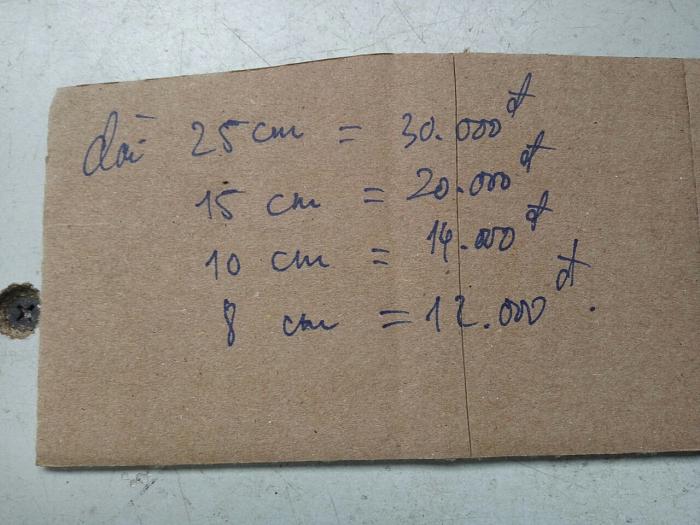 dài 25 cm = 30.000đ
15 cm = 20.000đ
10 cm = 14.000đ
8 cm = 12.000đ.